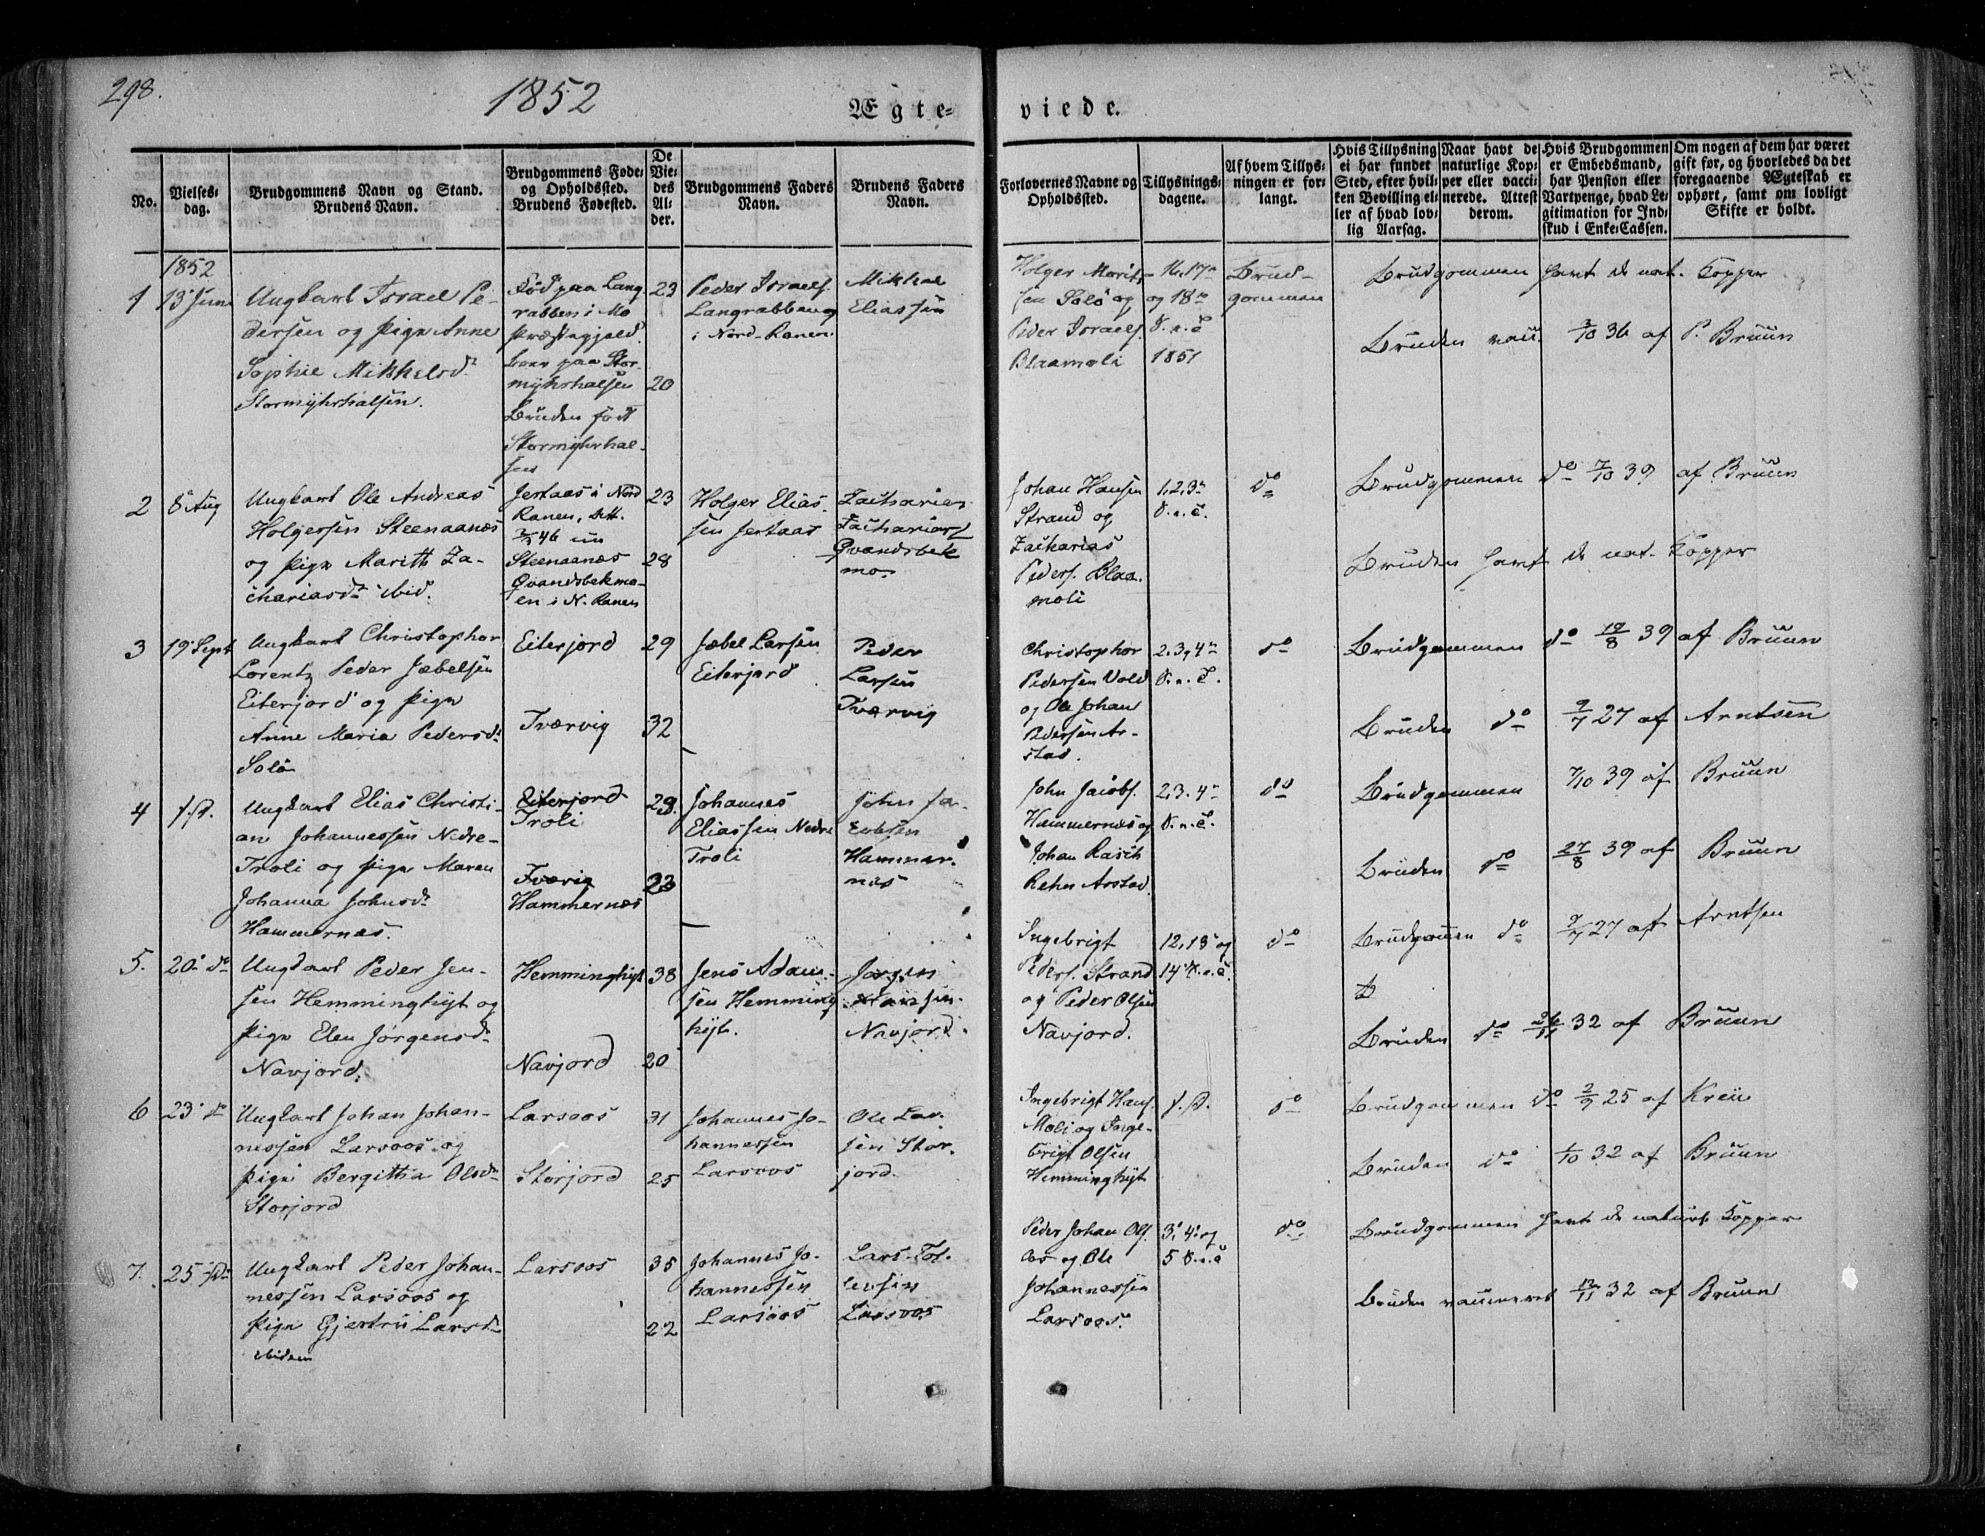 298.
1852
Ægte=
viede.
No.
Vielses-
dag.
Brudgommens Navn og Stand.
Brudens Navn.
Brudgommens Føde-
og Opholdssted.
Brudens Fødested.
De
Vie-
des
Al-
der.
Brudgommens Faders
Navn.
Brudens Faders
Navn.
Forlovernes Navne og
Opholdssted.
Tillysnings-
dagene.
Af hvem Tillys-
ningen er for-
langt.
Hvis Tillysning
ei har fundet
Sted, efter hvil-
ken Bevilling el-
ler af hvad lov-
lig Aarsag.
Naar havt de
naturlige Kop-
per eller vacci-
nerede. Attest
derom.
Hvis Brudgommen
er Embedsmand,
har Pension eller
Vartpenge, hvad Le-
gitimation for Ind-
skud i Enke-Cassen.
Om nogen af dem har været
gift før, og hvorledes da det
foregaaende Ægteskab er
ophørt, samt om lovligt
Skifte er holdt.
1852
1
13 Juni
Ungkarl Israel Pe-
dersen og Pige Anne
Sophie Mikkelsd.
Stormyhrhalsen.
Fød paa Lang
rabben i Mo
Præstegjeld.
paa Stor-
myhrhalsen
Bruden født
Stormyhrhal-
sen
23
20
Peder Israels.
Langrabben
i Nord-Ranen
Mikkal
Eliassen
Holger Morits-
sen Solø og
Peder Israels.
Blaamoli
16, 17de
og 18de
S. e. T.
1851
Brud-
gommen
Brudgommen havt de nat. Kopper
Bruden vacc. 3/10 36 af P. Bruun
2
8 Aug
Ungkarl Ole Andreas
Holgersen Steenaanæs
og Pige Marith Za-
chariasd. ibid.
Jertaas i Nord
Ranen, Att.
46
Steenaanæs
Qvandsbekmo-
en i N. Ranen
23
28
Holger Elias-
sen Jertaas
Zacharias
Zacharias
Qvandsbek
mo.
Johan Hansen
Strand og
Zackarias
Peders. Blaa-
moli
1, 2, 3de
S. e. T.
do
Brudgommen do 7/10 39 af Bruun
Bruden havt de nat. Kopper
3
19 Sept
Ungkarl Christopher
Lorentz Peder Jæbelsen
Eiterjord og Pige
Anne Maria Pedersd.
Solø
Eiterjord
Tværvig
29
32
Jæbel Larsen
Eiterjord
Peder
Larsen
Tværvig
Christopher
Pedersen Vold
og Ole Johan
Pedersen Ar-
stad.
2, 3, 4de
S. e. T.
do
Brudgommen do 19/8 39 af Bruun
Bruden do 9/7 27 af Arntsen
4
s. D.
Ungkarl Elias Christi-
an Johannessen Nedre-
Troli og Pige Maren
Johanna Johnsd.
Hammernæs.
Eiterjord
Troli
Tværvig
Hammernæs
29
23
Johannes
Eliassen Nedre
Troli
John Ja-
cobsen
Hammer-
næs
John Jacobs.
Hammernæs og
Johan Rasch
Rehn Arstad.
2, 3. 4de
S. e. T.
do
Brudgommen 7/10 39 af Bruun
Bruden do 27/8 39 af Bruun
5.
20 do
Ungkarl Peder Jen-
sen Hemminghyt og
Pige Elen Jørgensd.
Navjord.
Hemminghyt
Navjord
38
20
Jens Adam-
sen Hemming
hyt.
Jørgen
Navjord.
Ingebrigt
Peders. Strand
og Peder Olsen
Navjord.
12, 13 og
14 S. e. T.
do
Brudgommen do 9/7 27 af Arntsen
Bruden do 26/11 32 af Bruun
6
23 do
Ungkarl Johan Johan-
nessen Larsoos og
Pige Bergitha Olsd.
Storjord
Larsoos
Storjord
31
25
Johannes Jo-
hannessen
Larsoos
Ole Lar-
sen Stor-
jord.
Ingebrigt Hans.
Moli og Inge-
brigt Olsen
Hemminghyt
s. D.
do
Brudgommen do 2/9 25 af Kreu
Bruden do 1/10 32 af Bruun
7.
25 do
Ungkarl Peder Johan-
nessen Larsoos og
Pige Gjertru Larsd.
ibidem
Larsoos
35
22
Johannes Jo-
hannessen
Larsoos
Lars Tol-
levsen
Larsoos
Peder Johan Ols.
og Ole
Johannessen
Larsoos.
3, 4 og
5 S. e. T.
do
Brudgommen havt de naturl. Kopper
Bruden vaccineret 12/11 32 af Bruun